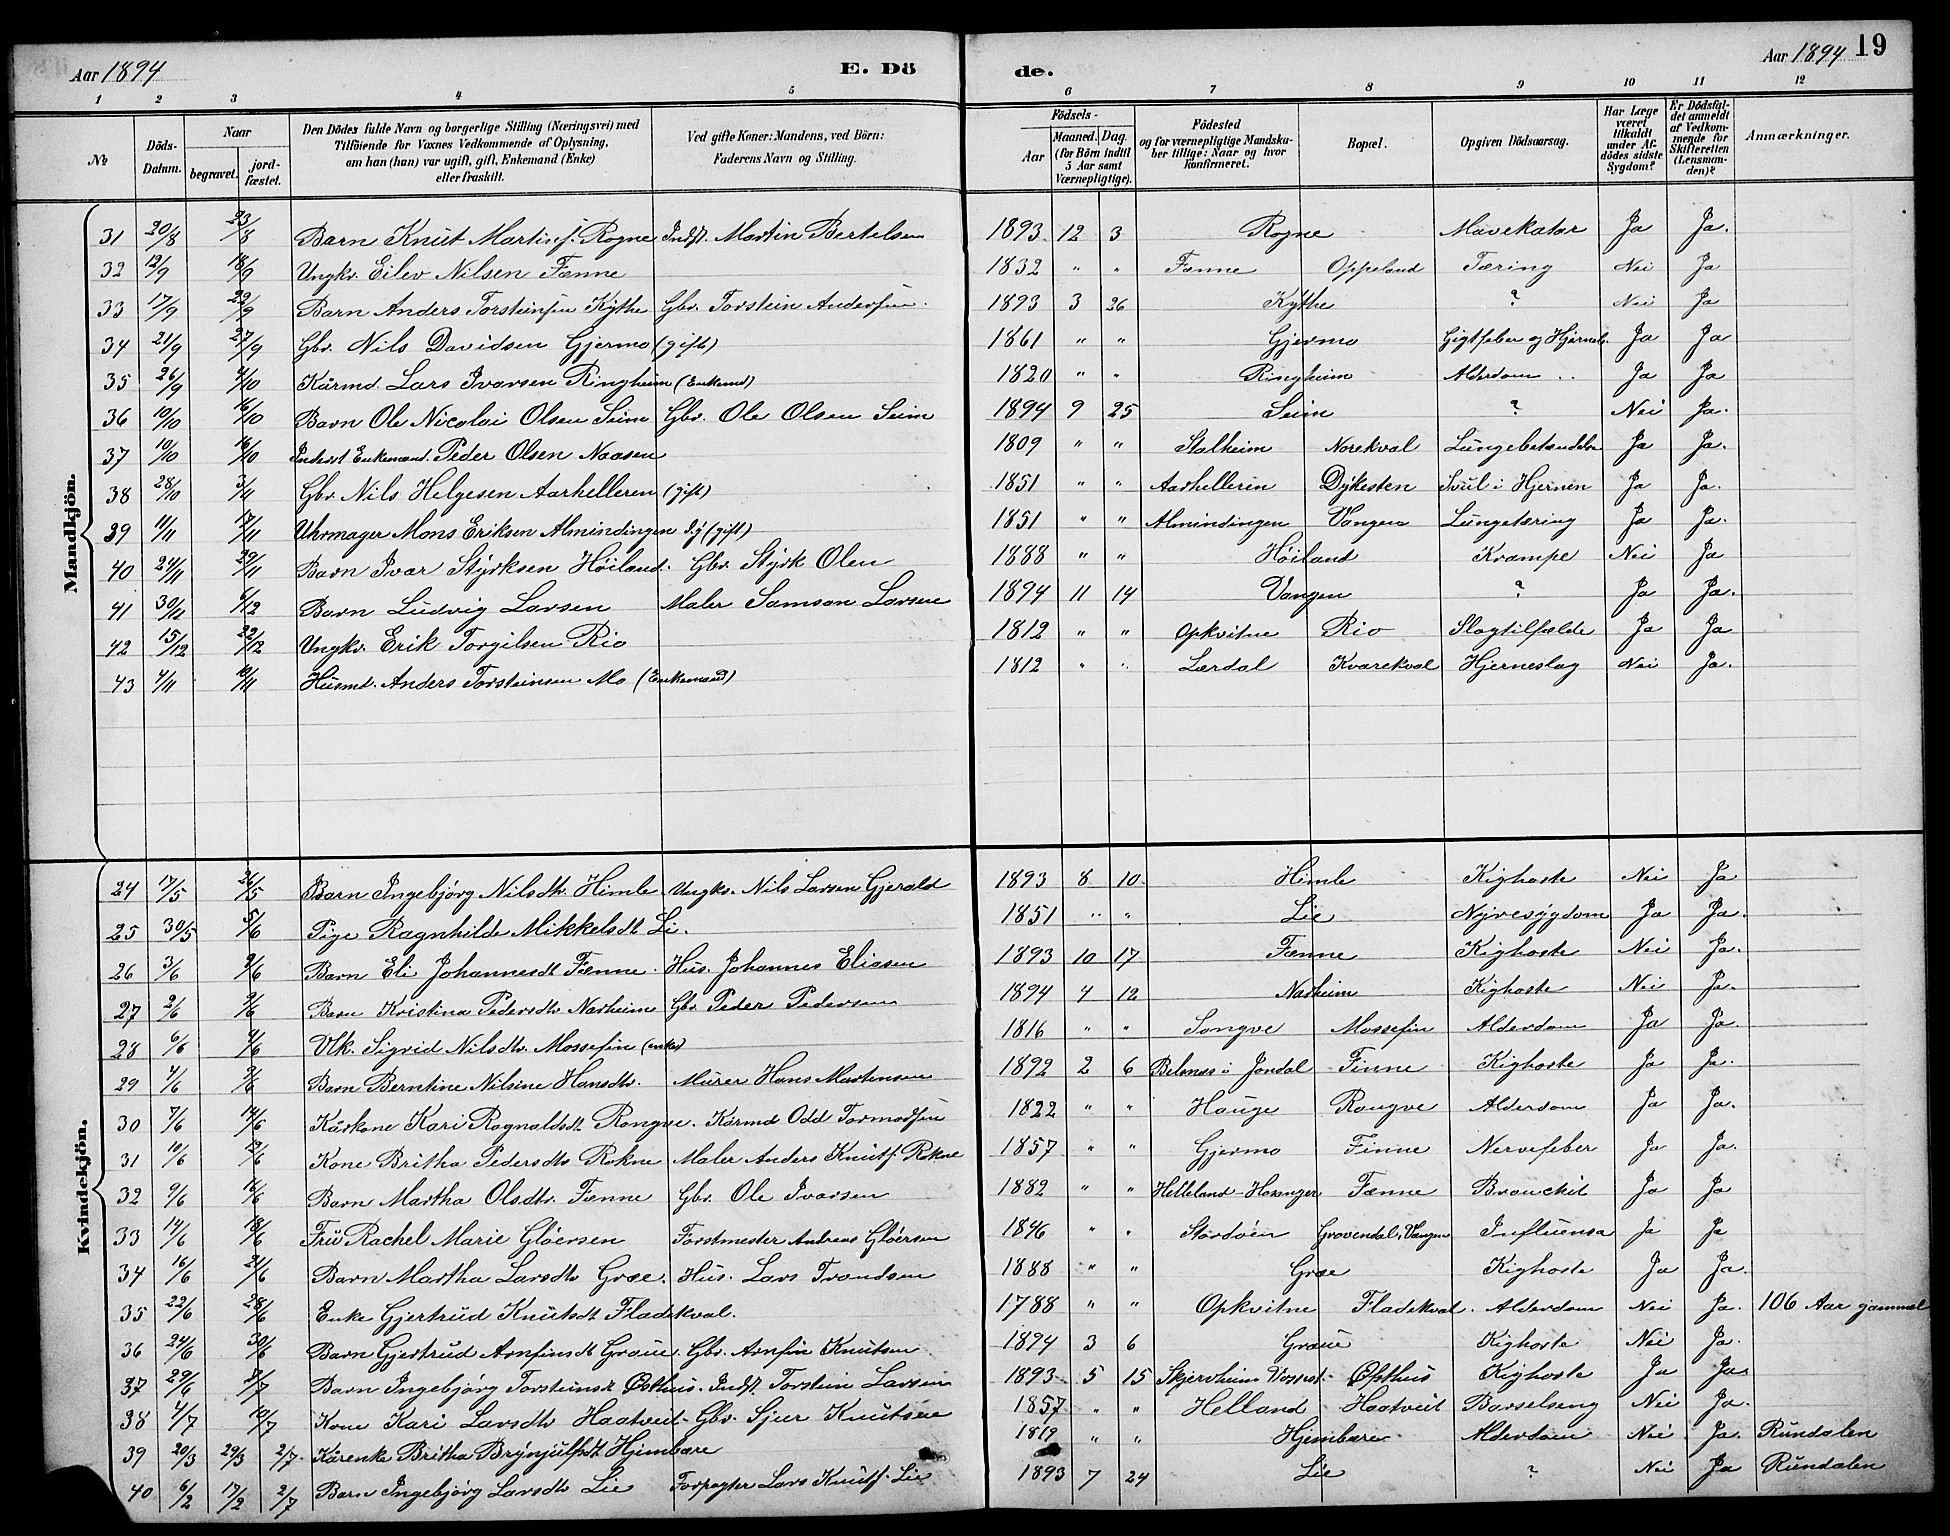 Aar 1894 E. Dö de. Aar 1894 19
1 2 3 4 5 6 7 8 9 10 11 12
No Döds-Datum. Naar begravet. jord-fæstet. Den Dödes fulde Navn og borgerlige Stilling (Næringsvei) med Tilföiende for Voxnes Vedkommende af Oplysning, om han (hun) var ugift, gift, Enkemand (Enke) eller fraskilt. Ved gifte Koner: Mandens, ved Börn: Faderens Navn og Stilling. Födsels- Aar Maaned. Dag. (for Börn indtil 5 Aar samt Værnepligtige). Födested og for værnepligtige Mandskaber tillige: Naar og hvor konfirmeret. Bopæl. Opgiven Dödsaarsag. Har Læge været tilkaldt under Afdödes sidste Sygdom? Er Dödsfaldet anmeldt af Vedkommende for Skifteretten (Lensmanden)? Anmærkninger.
Mandkjön.
31 20/8 23/8 Barn Knut Martinsf. Rogne Indst. Martin Bertelsen 1893 12 3 Rogne Mavekatar Ja Ja.
32 12/9 18/9 Ungkv. Eilev Nilsen Fenne 1832 " " Fenne Oppeland Tæring Nei Ja
33 17/9 22/9 Barn Anders Torsteinsen Kythe Gbr. Torstein Andersen. 1893 3 26 Kythe ? Nei Ja
34 21/9 27/9 Gbr. Nils Davidsen Gjermo (gift) 1861 " " Gjermo Gigtfeber og Hjerneb. Ja Ja
35 26/9 4/10 Kårmd. Lars Ivarsen Ringheim (Enkemd) 1820 " " Ringheim Alderdom Ja Ja
36 10/10 16/10 Barn Ole Nicolai Olsen Seim Gbr. Ole Olsen Seim 1894 9 25 Seim ? Nei Ja.
37 10/10 16/10 Inderst Enkemand. Peder Olsen Naasen 1809 " " Stalheim Norekval Lungebetændelse Ja Ja.
38 28/10 3/4 Gbr. Nils Helgesen Aarhelleren (gift) 1851 " " Aarhelleren Dykesten Svul i Hjernen Ja Ja.
39 11/11 17/11 Uhrmager Mons Eriksen Almindingen (gift) 1851 " " Almindingen Vangen Lungetæring Ja Ja.
40 24/11 29/11 Barn Ivar Styrksen Höiland. Gbr. Styrk Olsen 1888 " " Höiland Krampe Nei Ja
41 30/12 6/12 Barn Ludvig Larsen Maler Samson Larsen 1894 11 14 Vangen ? Ja Ja.
42 15/12 22/12 Ungkv. Erik Torgilsen Rio 1812 " " Opkvitne Rio Slagtilfælde Ja Ja
43 4/11 10/11 Husmd. Anders Torsteinsen Mo (Enkemand) 1812 " " Lærdal Kvarekval Hjerneslag Nei Ja.
Kvindekjön.
24 17/5 26/5 Barn Ingebjørg Nilsdtr. Himle Ungkv. Nils Larsen Gjerald 1893 8 10 Himle Kighoste Nei Ja
25 30/5 5/6 Pige Ragnhilde Mikkelsdt Li. 1851 " " Lie Nyresygdom Ja Ja.
26 3/6 9/6 Barn Eli Johannesdt Fenne. Hus. Johannes Eliasen 1893 10 17 Fenne Kighoste Nei Ja.
27 2/6 9/6 Barn Kristina Pedersdtr Narheim Gbr Peder Pedersen 1894 4 12 Narheim Kighoste Nei Ja.
28 6/6 9/6 Vlk. Sigrid Nilsdtr. Mossefin (enke) 1816 " " Songve Mossefin Alderdom Ja Ja.
29 4/6 9/6 Barn Berntine Nilsine Hansdtr. Murer Hans Martinsen 1892 2 6 Belsnes i Jondal Finne Kighoste Ja Ja.
30 7/6 14/6 Kårkone Kari Ragnaldsdt Rongve. Kårmd Odd Tormodsen 1822 " " Hauge Rongve Alderdom Ja Ja.
31 10/6 12/6 Kone Britha Pedersdtr Rokne Maler Anders Knutsf. Rokne 1857 " " Gjermo Finne Nervefeber Ja Ja.
32 9/6 16/6 Barn Martha Olsdtr. Fenne Gbr. Ole Ivarsen 1882 " " Helleland-Haranger Fenne Bronchit Ja Ja
33 14/6 18/6 Frü Rachel Marie Glöersen Forstmester Andreas Glöersen 1846 " " Stordöen Grovendal, Vangen Influensa Ja Ja
34 16/6 21/6 Barn Martha Larsdtr Græe. Hus. Lars Trondsen 1888 " " Græe Kighoste Ja Ja.
35 22/6 28/6 Enke Gjertrud Knutsdt Fladekval. 1788 " " Opkvitne Fladekval. Alderdom Nei Ja. 106 Aar gammel
36 24/6 30/6 Barn Gjertrud Arnfinsdt Graue. Gbr. Arnfin Knutsen 1894 3 6 Graue Kighoste Nei Ja.
37 29/6 3/7 Barn Ingebjørg Torsteinsdt Østhus. Indst. Torstein Larsen 1893 5 15 Skjerrheim Vossest. Opthus Kighoste Ja Ja.
38 4/7 10/7 Kone Kari Larsdtr Haatveit. Gbr. Sjur Knutsen 1857 " " Helland Haatveit Barselseng Nei Ja.
39 20/3 29/3 2/7 Kårenke Britha Brynjulfsdt Hjembare 1819 " " Hjembare Alderdom Nei Ja. Rundalen
40 6/2 17/2 2/7 Barn Ingebjørg Larsdtr Lie Forpagter Lars Knutsf. Lie 1893 7 24 Lie ? Nei Ja Rundalen